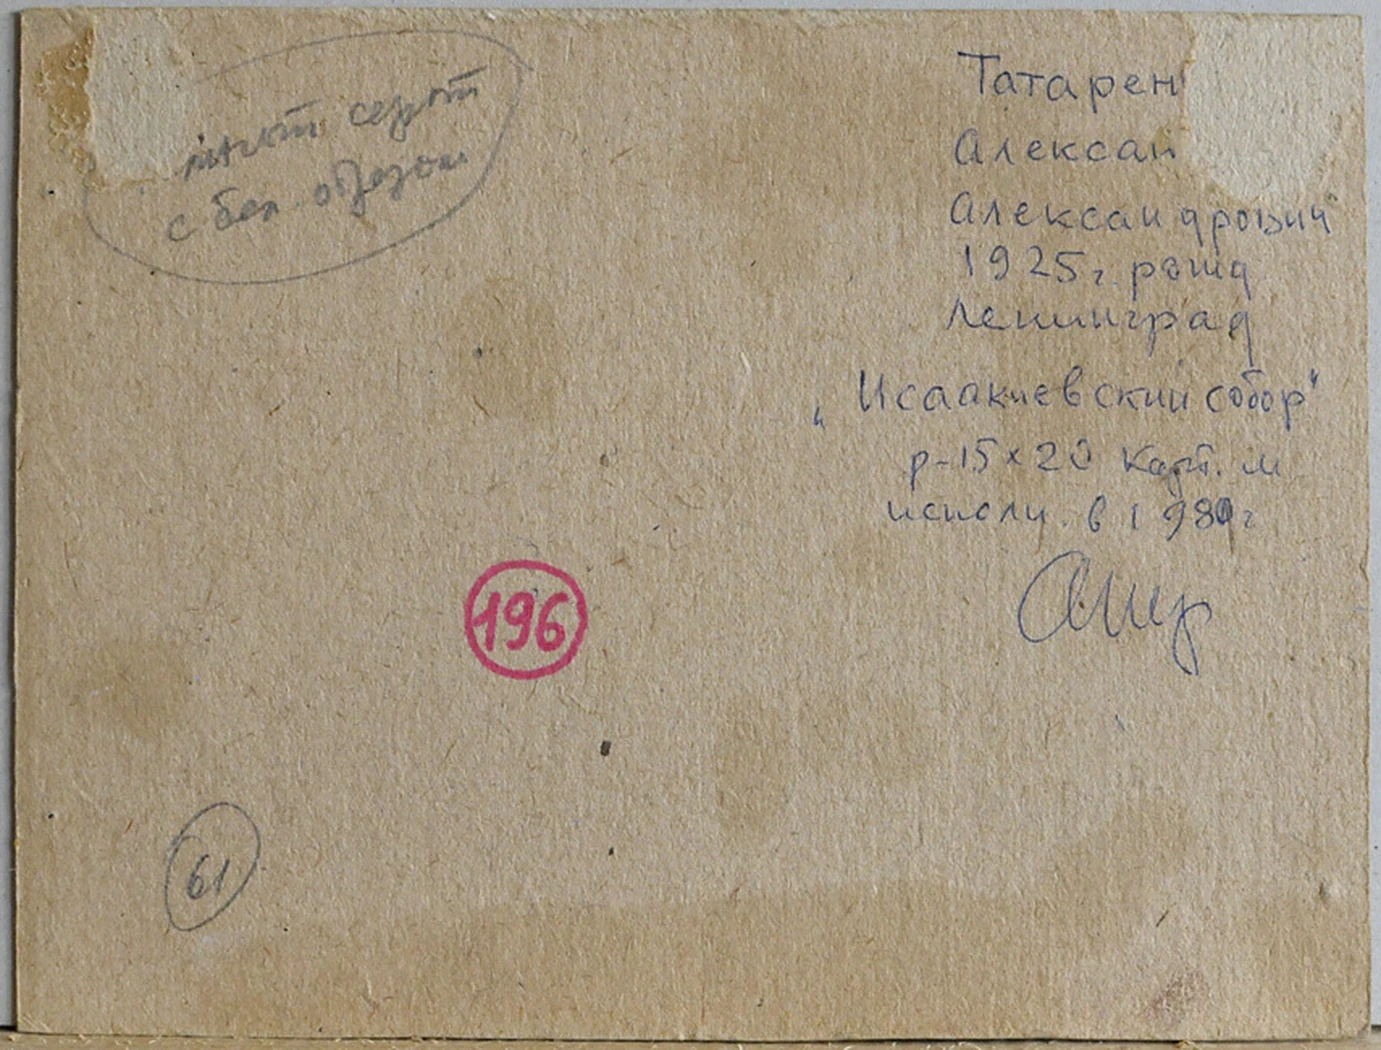 с бел. обрезом
Татарен
Алексан
Александрович
1925г. рожд
Ленинград
"Исаакиевский собор"
р-15х20 карт. м
исполн. в 1980г
196
61